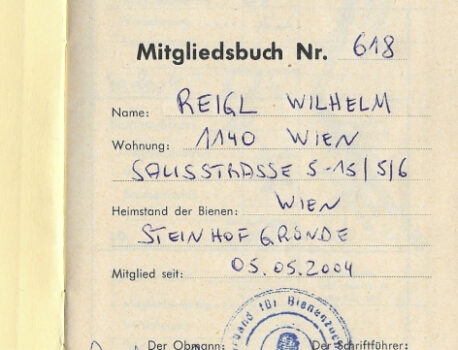 Mitgliedsbuch Nr. 618
Name: REIGL WILHELM
Wohnung: 1140 WIEN
SALISSTRASSE 5-15/5/6
Heimstand der Bienen: WIEN
STEINHOFGRÜNDE
Mitglied seit: 05.05.2004
für Bienenzucht
Der Obmann: Der Schriftführer: